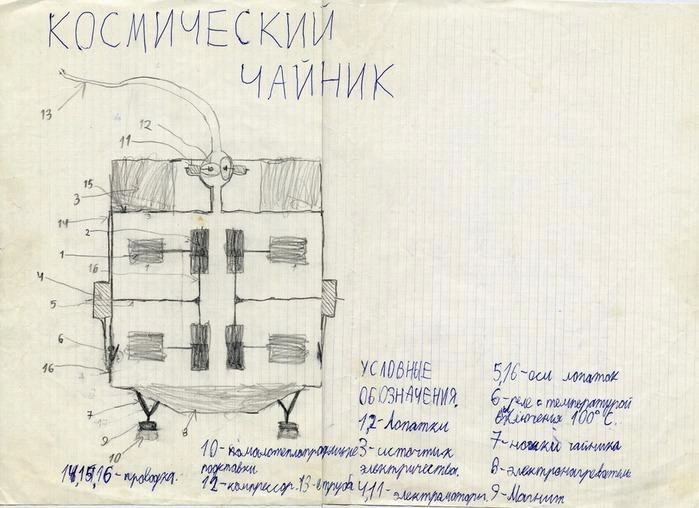 КОСМИЧЕСКИЙ
ЧАЙНИК
13
12
11
15
3
3
14
2
1
1
1
16
4
5
6
16
7
9
8
10
УСЛОВНЫЕ
ОБОЗНАЧЕНИЯ.
1,2-Лопатки
3-источник
электричества.
4,11-электромоторы.
5,16-оси лопаток
6-реле с температурой
выключения 100°С.
7-ножки чайника
8-электронагреватель
9-Магнит
10-
подставки
12-компрессор. 13-труба
14,15,16-проводка.